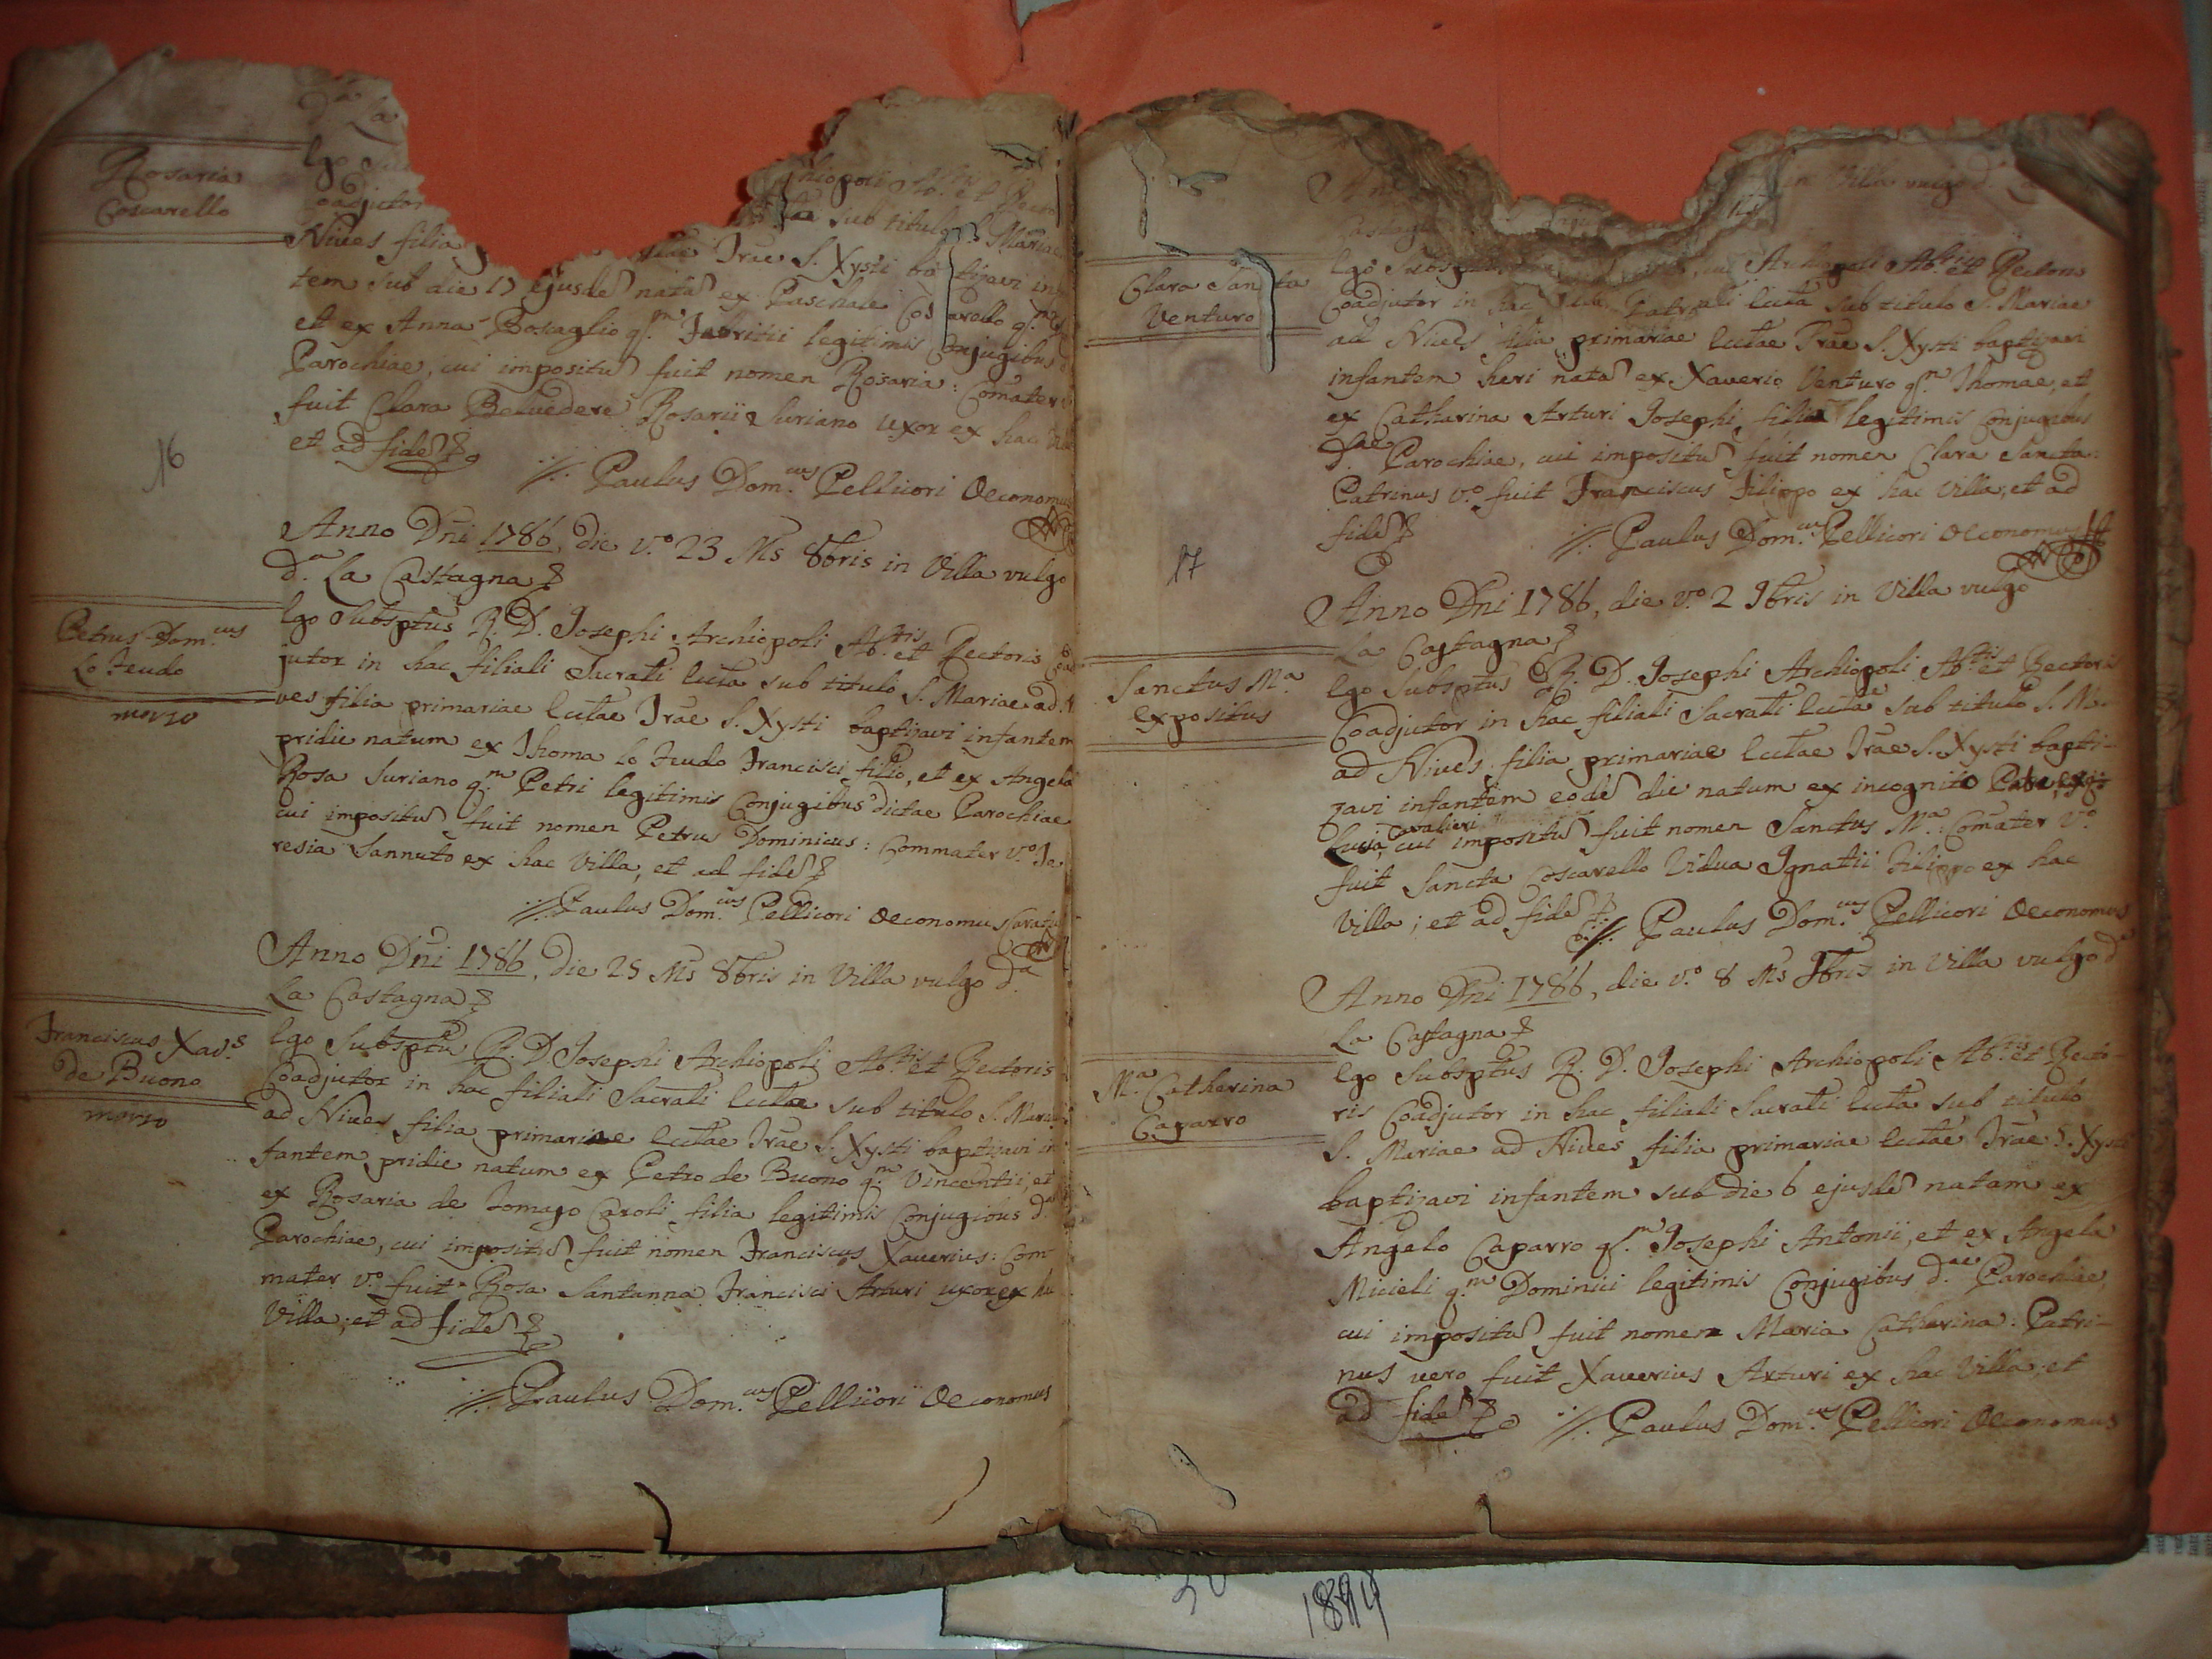 d.ª La
Rosaria
Coscarello
Ego Su
Coadjutor
hiopoli Ab.tis et Recto
sub titulo S. Mariae
Nives filia
Irae S. Xysti baptizavi in
tem sub die 17 ejusdē natā ex Paschale Coscarello q.m
et ex Anna Boscaglio q.m Fabritii legitimis Conjugibus
Parochiae, cui impositū fuit nomen Rosaria: Comater
fuit Clara Belvedere Rosarii Suriano uxor ex hac
et ad fidē
16
Paulus Dom.cus Pellicori Oeconomus
Anno Dñi 1786, die v.o 23 Ms 8bris in Villa vulgo
d.ª La Castagna
Petrus Dom.cus
Lo Feudo
morto
Ego Subsptus R. D. Josephi Archiopoli Ab.tis et Rectoris Coad
jutor in hac filiali Sacrati Eccta sub titulo S. Mariae ad N
ves filia primariae Ecctae Irae S. Xysti baptizavi infantem
pridie natum ex Thoma lo Feudo Francisci filio, et ex Angela
Rosa Suriano q.m Petri legitimis Conjugibus dictae Parochiae
cui impositū fuit nomen Petrus Dominicus: Commater v.o Te
resia Sannuto ex hac Villa, et ad fidē
Paulus Dom.cus Pellicori Oeconomus Curatus
Anno Dñi 1786, die 25 Ms 8bris in Villa vulgo d.ª
La Castagna
Franciscus Xav.s
de Buono
morto
Ego Subsptus R. D. Josephi Archiopoli Ab.tis et Rectoris
Coadjutor in hac filiali Sacrati Ecctae sub titulo S. Mariae
ad Nives filia primariae Ecctae Irae S. Xysti baptizavi in
fantem pridie natum ex Petro de Buono q.m Vincentii, et
ex Rosaria de Tomaso Caroli filia legitimis Conjugibus d.ae
Parochiae, cui impositū fuit nomen Franciscus Xaverius: Com
mater v.o fuit Rosa Santanna Francisci Arturi uxor ex ha
Villa; et ad fidē
Paulus Dom.cus Pellicori Oeconomus
in Villa vulgo d. La
Castagn
Clara Santa
Venturo
Ego Subsptus Archiopoli Ab.tis et Rectoris
Coadjutor in hac Eccta sub titulo S. Mariae
ad Nives filia primariae Ecctae Irae S. Xysti baptizavi
infantem heri natā ex Xaverio Venturo q.m Thomae, et
ex Catharina Arturi Josephi filia legitimis Conjugibus
d.ae Parochiae, cui impositū fuit nomen Clara Sancta:
Patrinus v.o fuit Franciscus Filippo ex hac Villa, et ad
fidē
17
Paulus Dom.cus Pellicori Oeconomus
Anno Dñi 1786, die v.o 2 9bris in Villa vulgo
La Castagna
Sanctus M.ª
Expositus
Ego Subsptus R. D. Josephi Archiopoli Ab.tis et Rectoris
Coadjutor in hac filiali Sacrati Eccta sub titulo S. M.
ad Nives filia primariae Ecctae Irae S. Xysti bapti-
zavi infantem eodē die natum ex incognito Patre, ex
Cavalieri
Lucia, cui impositū fuit nomen Sanctus M.ª: Comater v.o
fuit Sancta Coscarello Vidua Ignatii Filippo ex hac
Villa; et ad fidē
Paulus Dom.cus Pellicori Oeconomus
Anno Dñi 1786, die v.o 8 Ms 9bris in Villa vulgo d
La Castagna
M.ª Catharina
Caparro
Ego Subsptus R. D. Josephi Archiopoli Ab.tis et Recto-
ris Coadjutor in hac filiali Sacrati Eccta sub titulo
S. Mariae ad Nives filia primariae Ecctae Irae S. Xysti
baptizavi infantem sub die 6 ejusdē natam ex
Angelo Caparro q.m Josephi Antonii, et ex Angela
Micieli q.m Dominici legitimis Conjugibus d.ae Parochiae,
cui impositū fuit nomen Maria Catharina: Patri-
nus vero fuit Xaverius Arturi ex hac Villa; et
ad fidē
Paulus Dom.cus Pellicori Oeconomus